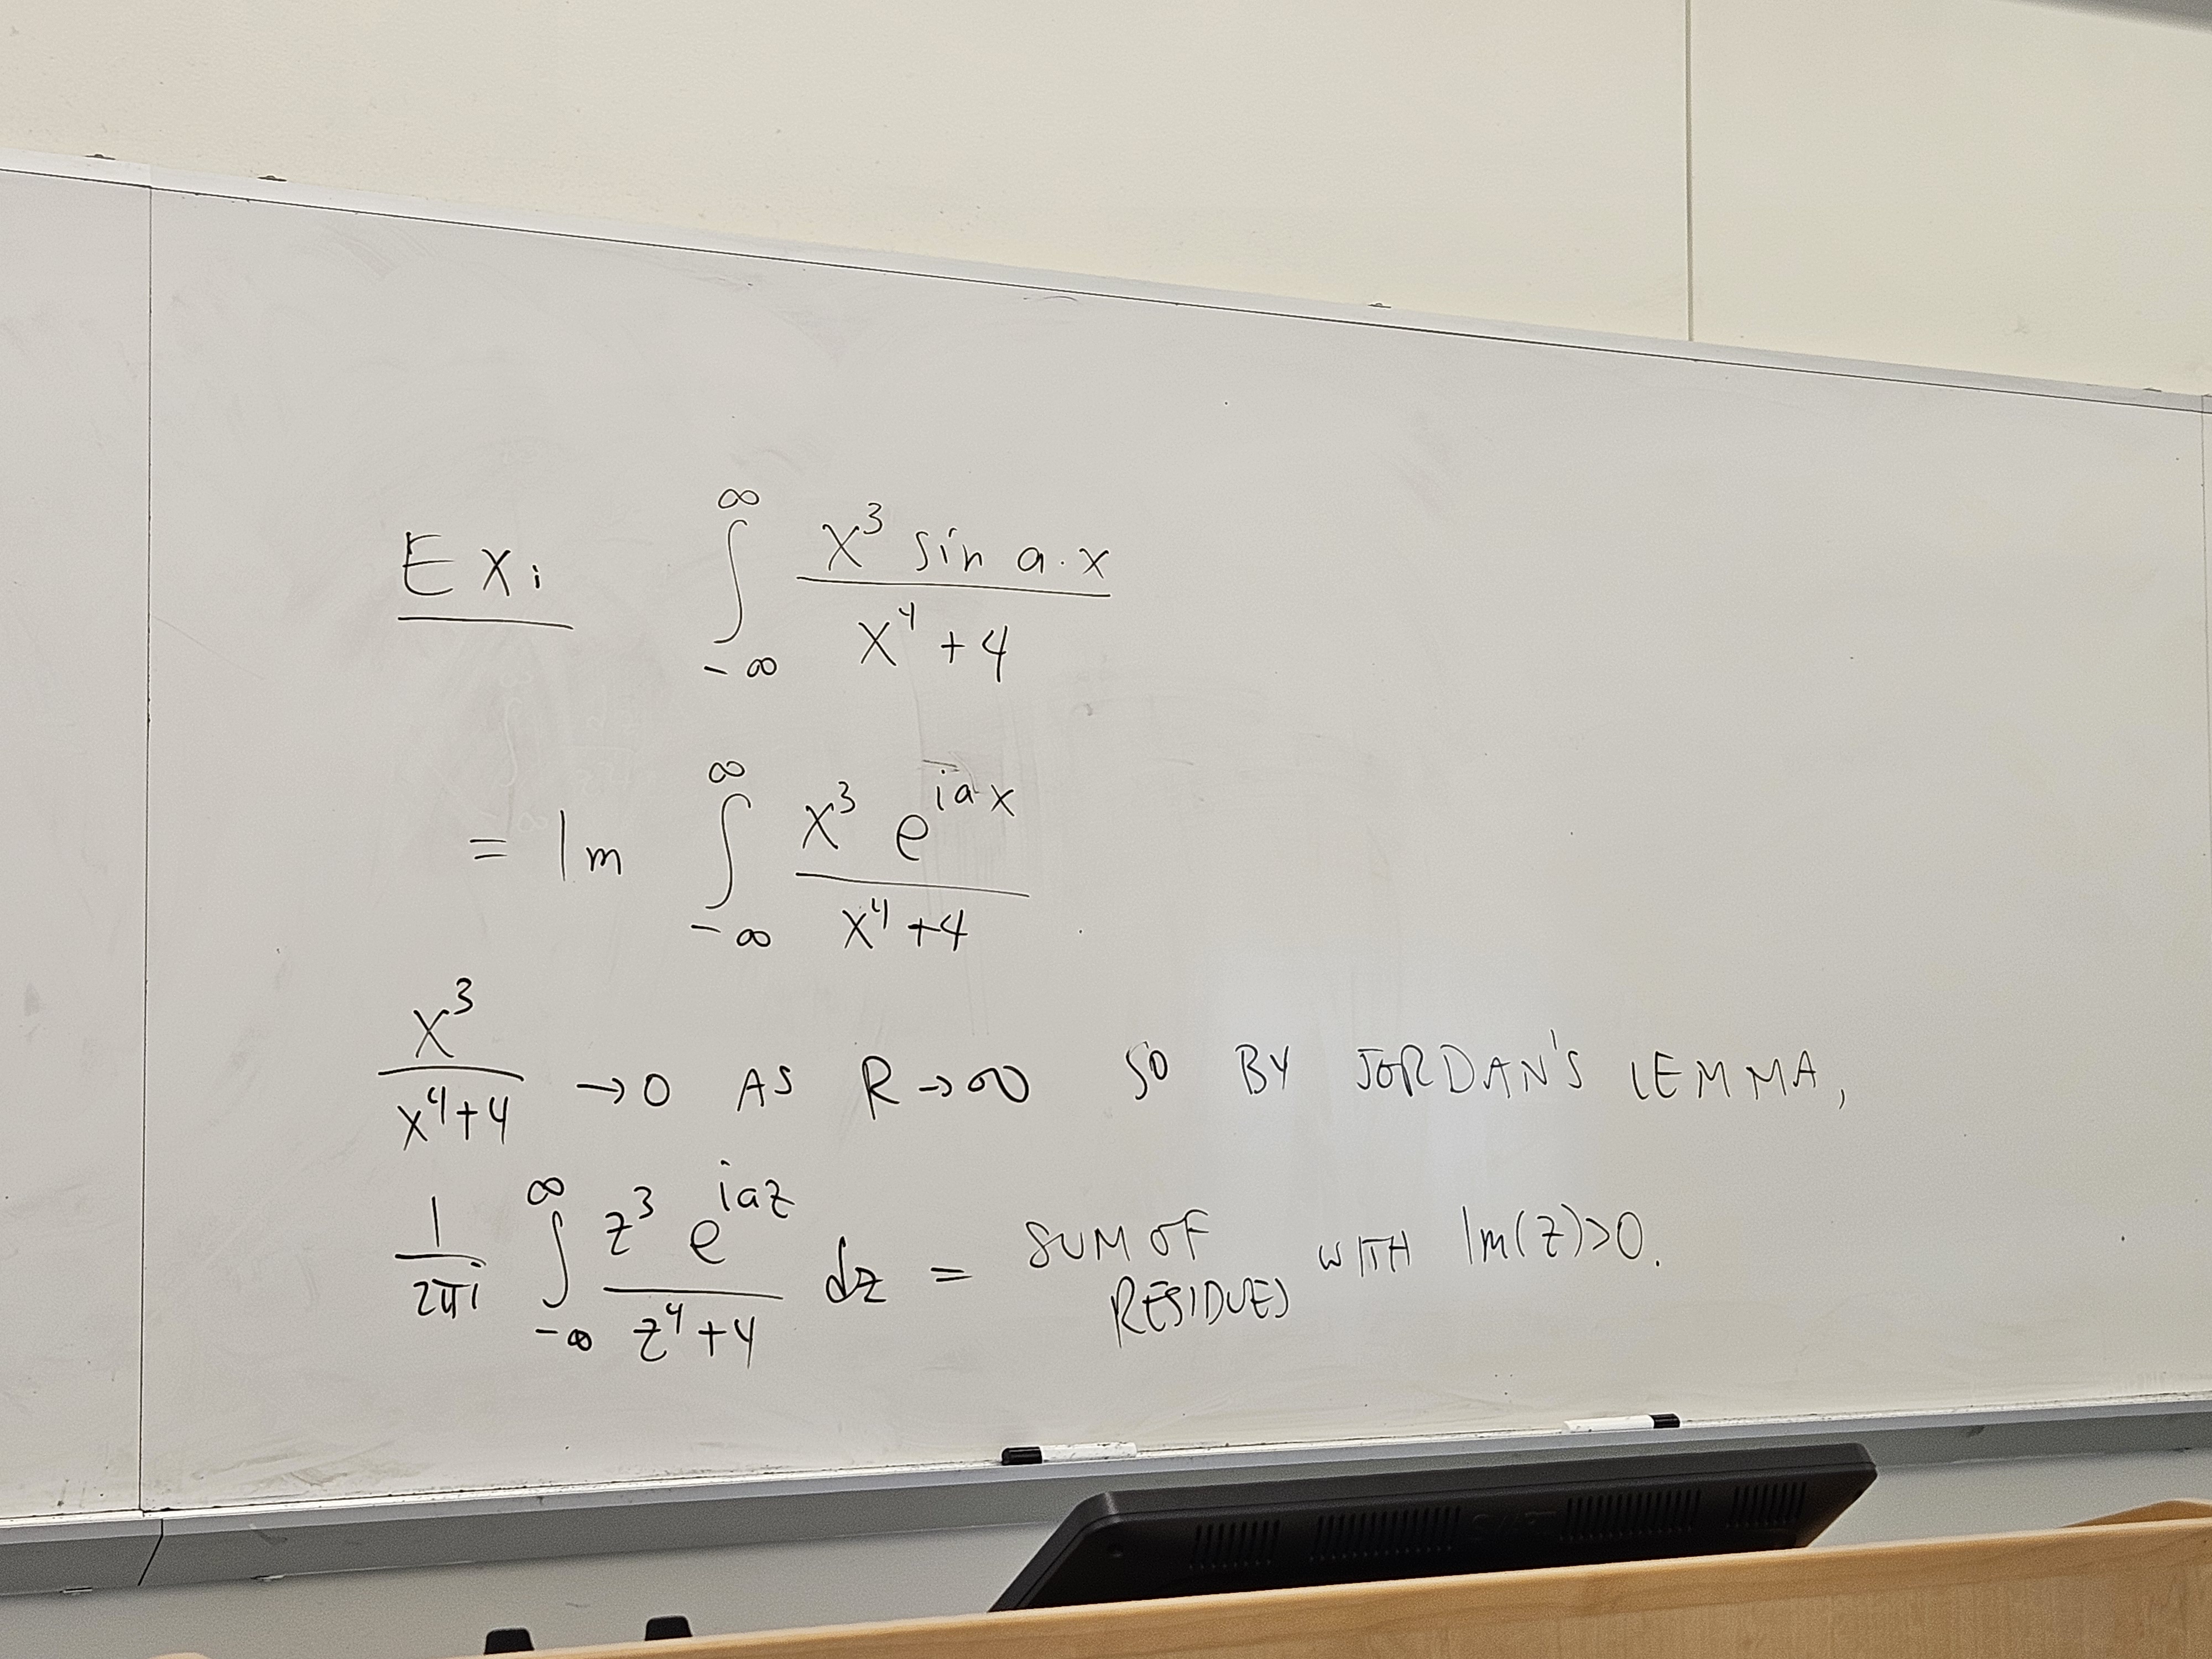 Ex: ∫_{-∞}^{∞} \frac{x^3 sin a·x}{x^4+4}
= Im ∫_{-∞}^{∞} \frac{x^3 e^{iax}}{x^4+4}
\frac{x^3}{x^4+4} → 0 AS R→∞ SO BY JORDAN'S LEMMA,
\frac{1}{2πi} ∫_{-∞}^{∞} \frac{z^3 e^{iaz}}{z^4+4} dz = SUM OF RESIDUES WITH Im(z)>0.